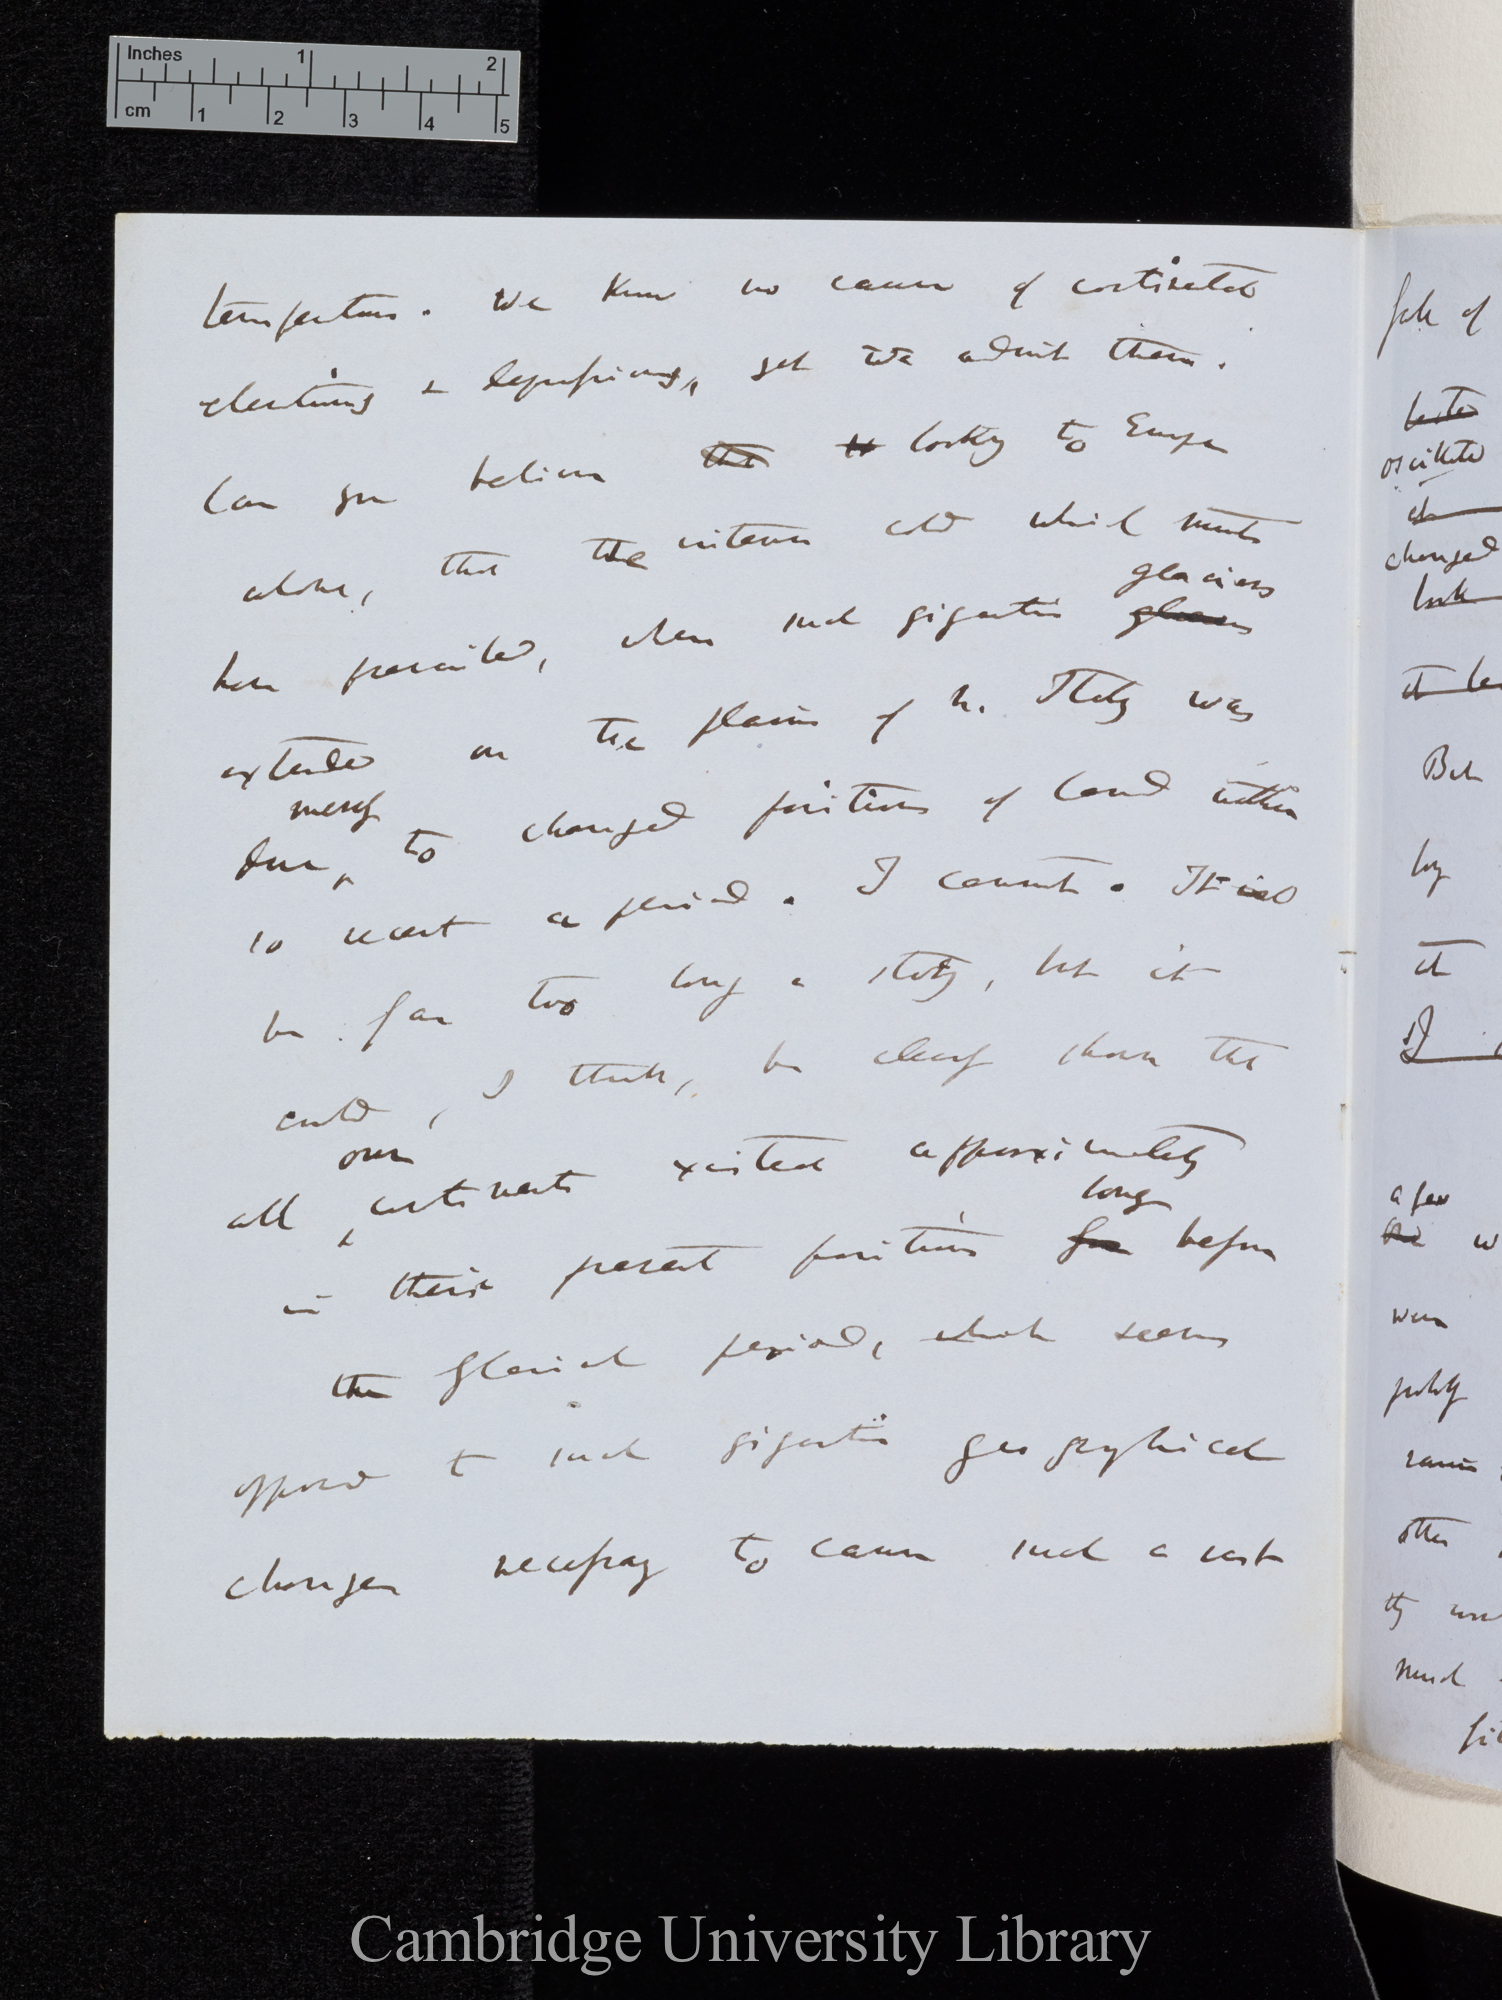 Inches 1 2
cm 1 2 3 4 5
temperature. We know no cause of continental
elevations & depressions, yet we admit them.
Can you believe looking to Europe
alone, that the intense cold which must
glaciers
have prevailed, when such gigantic
extended on the plains of N. Italy was
merely
due to changed positions of land within
so recent a period. I cannot. It wd
be far too long a story, but it
could, I think, be clearly shown that
our
all continents existed approximately
long
in their present positions before
the Glacial period, which seems
opposed to such gigantic geographical
changes necessary to cause such a vast
fall of
oscillated
changed
But
by
it
I
a few
were
probably
same
other
they
much
Cambridge University Library